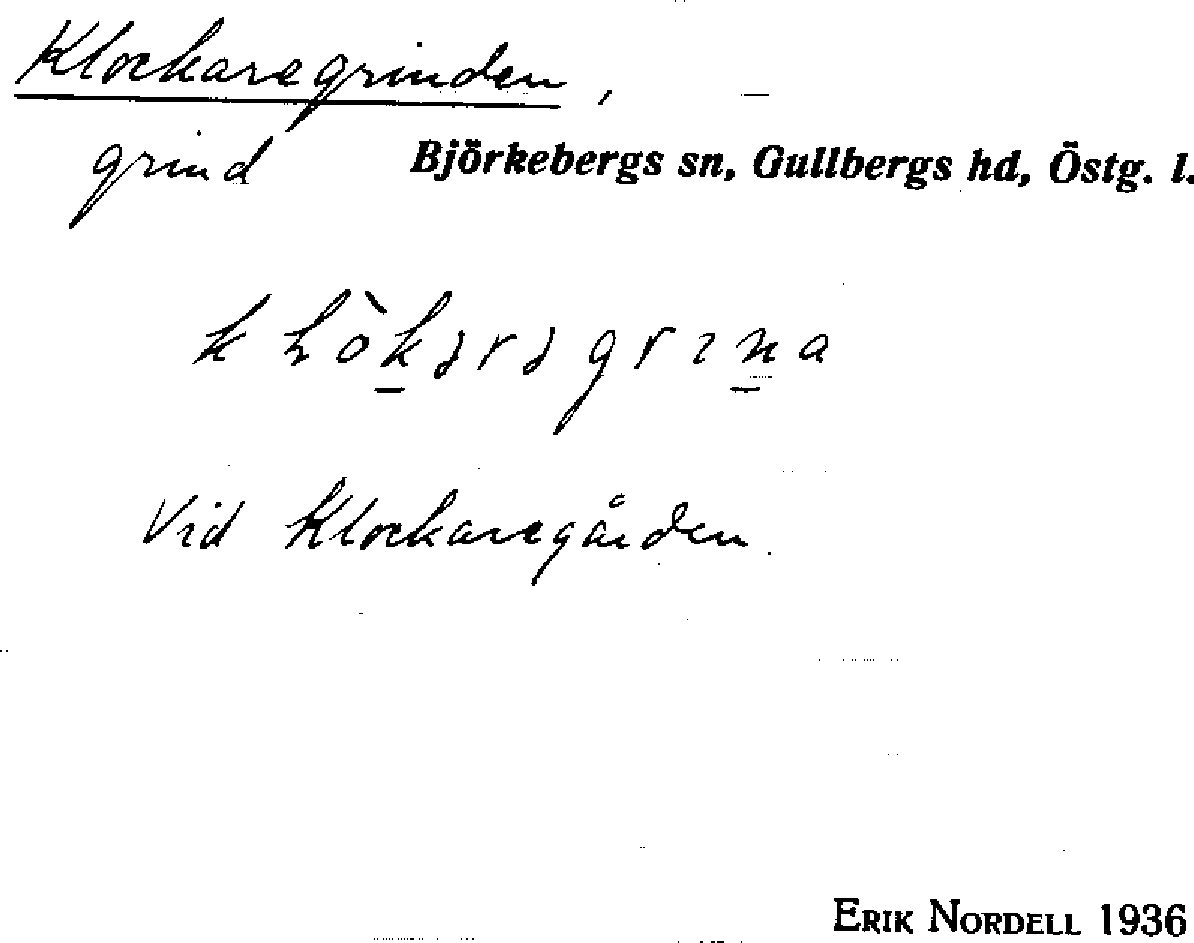 Klockaregrinden, —
grind Björkebergs sn, Gullbergs hd, Östg. l.
Vid Klockaregården.
ERIK NORDELL 1936